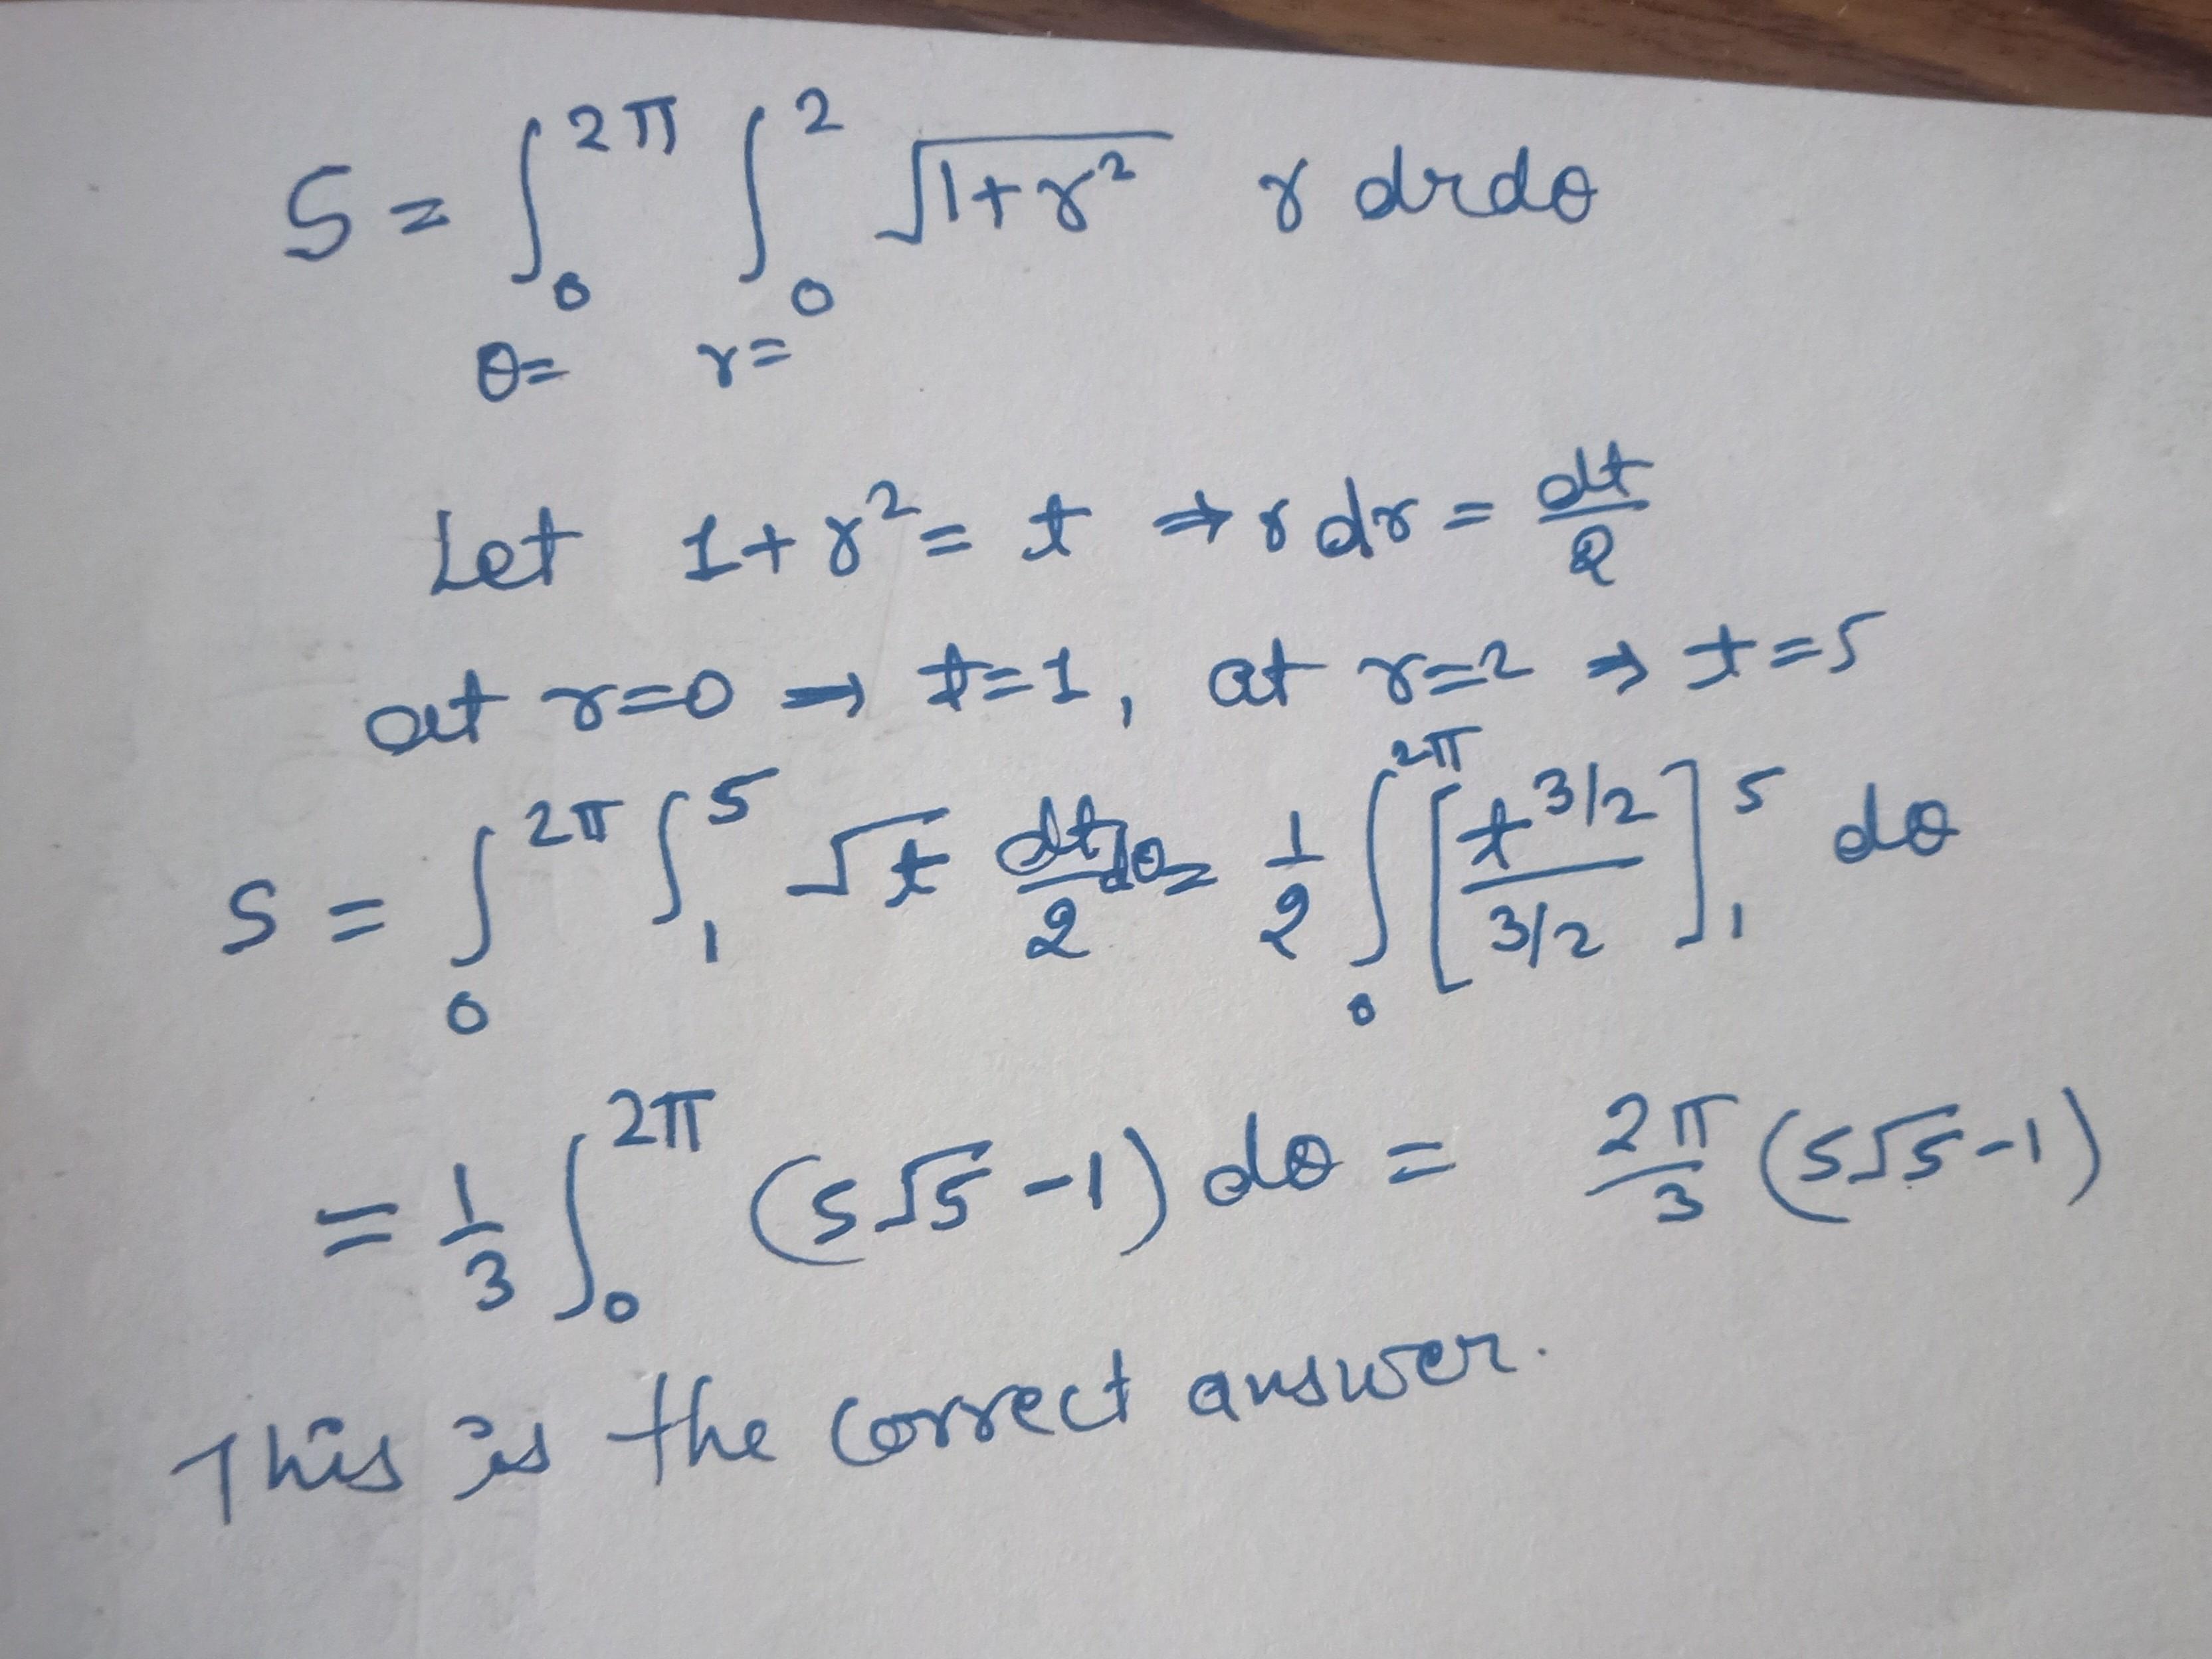 S = ∫₀^{2π} ∫₀^{2} √(1+r²) r dr dθ
θ= r=
Let 1+r² = t ⇒ r dr = dt/2
at r=0 ⇒ t=1, at r=2 ⇒ t=5
S = ∫₀^{2π} ∫₁^{5} √t dt/2 dθ = 1/2 ∫₀^{2π} [t^{3/2}/(3/2)]₁^{5} dθ
= 1/3 ∫₀^{2π} (5√5 -1) dθ = 2π/3 (5√5-1)
This is the correct answer.